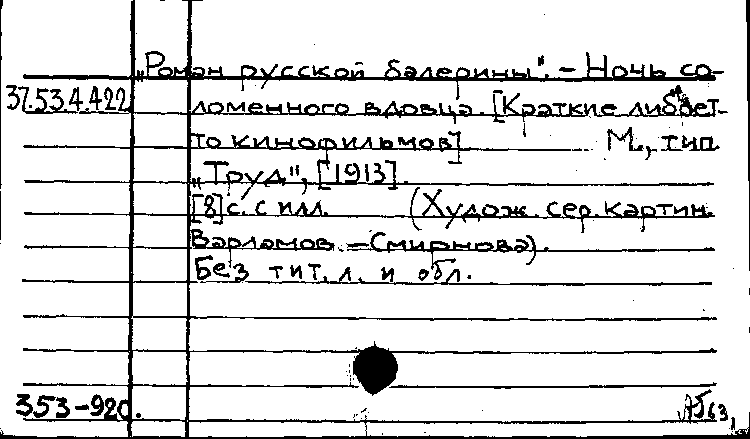 „Роман русской балерины". – Ночь со-
37.53.4.422 ломенного вдовца. [Краткие либрет-
то кинофильмов] М., тип.
„Труд", [1913].
[8] с. с илл. (Худож. сер. картин.
Варламов. – Смирнова).
Без тит. л. и обл.
353-920.